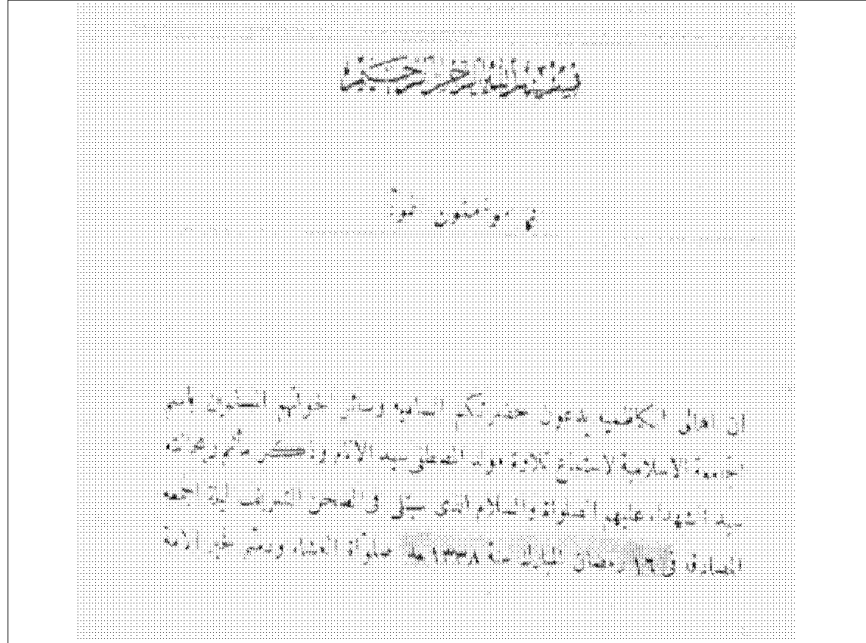 بسم الله الرحمن الرحيم
المؤمنون اخوة
ان اهالي الكاظمية يدعون حضرتكم السامية وسائر اخوانهم المسلمين باسم
الجامعة الاسلامية لاستماع تلاوة مولد المصطفى سيد الانام وذكر مآثر
سيد الشهداء عليهم الصلوة والسلام الذي سيتلى في الصحن الشريف ليلة الجمعة
المصادف في ١٦ رمضان المبارك سنة ١٣٣٨ بعد صلوة العشاء ودمتم لخير الامة